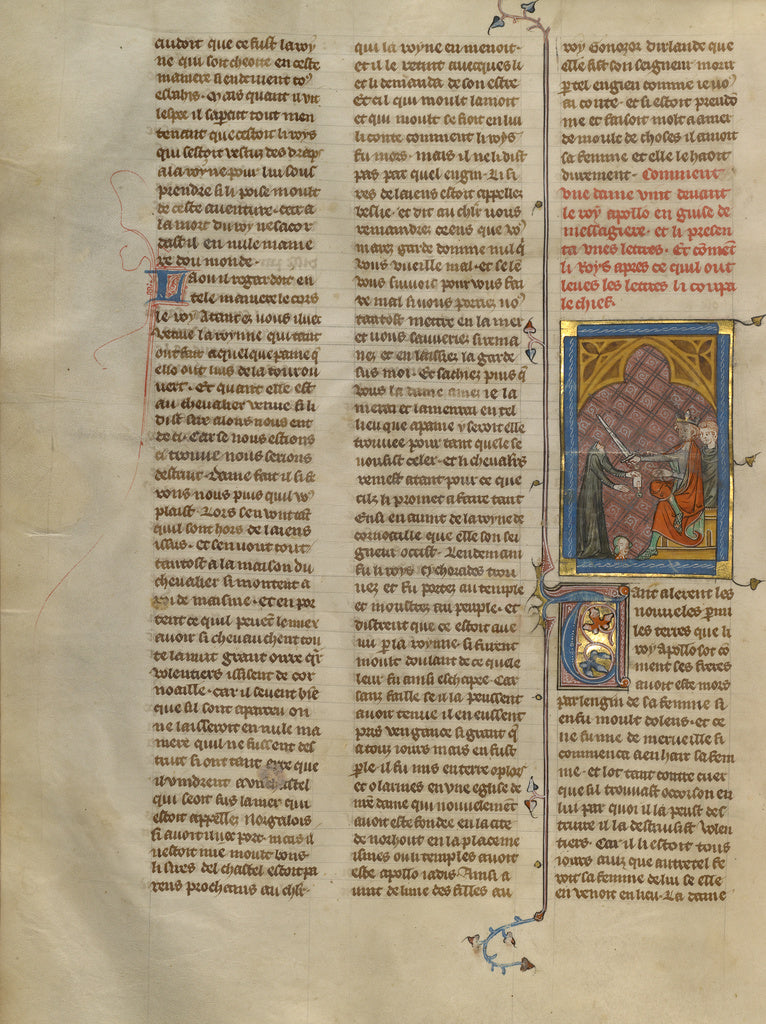 cuidoit que ce fust la roy
ne qui soit cheoite en ceste
maniere si en devient toꝰ
esbahis. Mais quant il vit
lespee il saperçut tout men
tenant que cestoit li roys
qui sestoit vestuz des draps
a la royne pour lui sous
prendre si li poise moult
de ceste aventure. car a
la mort du roy ne sacor
dast il en nule manie
re dou monde.
La ou il regardoit en
tele maniere le cors
le roy Atant ez vous iluec
venue la royne qui tant
ont fait a quelque paine q̃
elle out luis de la tour ou
vert. Et quant elle est
au chevalier venue si li
dist sire alons nous ent
de ci. Car se nous estions
ci trouve nous serions
destruit. Dame fait il si fe
rons nous puis quil voꝰ
plaist. Lors sen vont tãt
quil sont hors de laiens
issus. et sen vont tout
tantost a la maison du
chevalier si montent a
de maisnie. et en por
tent ce quil peuent lemier
avoir si chevauchent tou
te la nuit grant oirre q̃r
volentiers issisent de cor
noaille. car il sevent bie
que sil sont aparceu on
ne laisseroit en nule ma
niere quil ne fussent des
truit si ont tant erre que
il vindrent a un chastel
qui seoit sus la mer qui
estoit appellez Norgalois
si avoit iluec port. mais il
nestoit mie moult bons
li sires del chastel estoit pa
rens prochains au chlr.
qui la royne en menoit.
et il le retint avecques li
et li demanda de son estre
Et cil qui moult lamoit
et qui moult se fioit en lui
li conte comment li roys
fu mors. mais il ne li dist
pas par quel engin. Li si
res de laiens estoit appellez
et dit au chlr vous
remaindrez ceens que voꝰ
mavez garde domme nul q̃
vous vueille mal. et se le
vous savoie pour vous fai
re mal si vous porriez noꝰ
tantost mettre en la mer
et vous sauveriez si rema
nez et en laissiez la garde
sus moi. Et sachiez puis q̃
vous la dame amez ie la
metrai et lamentai en tel
lieu que a paine y seroit elle
trouvee pour tant quele se
vousist celer. et li chevalrs
remest atant pour ce que
cilz li promet a faire tant
Ensi en avint de la royne de
cornoaille que elle son sei
gneur occist. Lendemain
fu li roys Thorades trou
vez et fu portez au temple
et moustrez au peuple. et
distrent que ce estoit ave
nu p̲ la royne. si furent
moult doulant de ce quele
leur fu ainsi eschapee. Car
sanz faille se il la peussent
avoir tenue il en eussent
pris vengance si grant q̃
a touz iours mais en fust
p̲le. il fu mis en terre o plors
et o larmes en une eglise de
nr̃e dame qui nouvelemẽt
avoit este fondee en la cite
de norhout en la place me
ismes ou li temples avoit
este apollo iadis. Ainsi a
vint de lune des filles au
roy Gonozor dirlande que
elle fist son seigneur morir
p̲ tel engien comme ie voꝰ
ai conte. et si estoit preudõ
me et faisoit molt a amer
de moult de choses il amoit
sa femme et elle le haoit
durement. Comment
une dame vint devant
le roy apollo en guise de
messagiere. et li presen
ta unes lettres. Et cõmẽt
li roys apres ce quil out
leues les lettres li coupa
le chief.
Tant alerent les
nouveles parmi
les terres que li
roy apollo sot cõ
ment ses freres
avoit este mors
par lengin de sa femme si
en fu moult dolens. et ce
ne fu mie de merveille si
commenca a en hair sa fem
me. et lot tant contre cuer
que sil trouvast occoison en
lui par quoi il la peust des
truire il la destruisist volen
tiers. Car il li estoit tous
iours avis que autretel fe
roit sa femme de lui se elle
en venoit en lieu. La dame